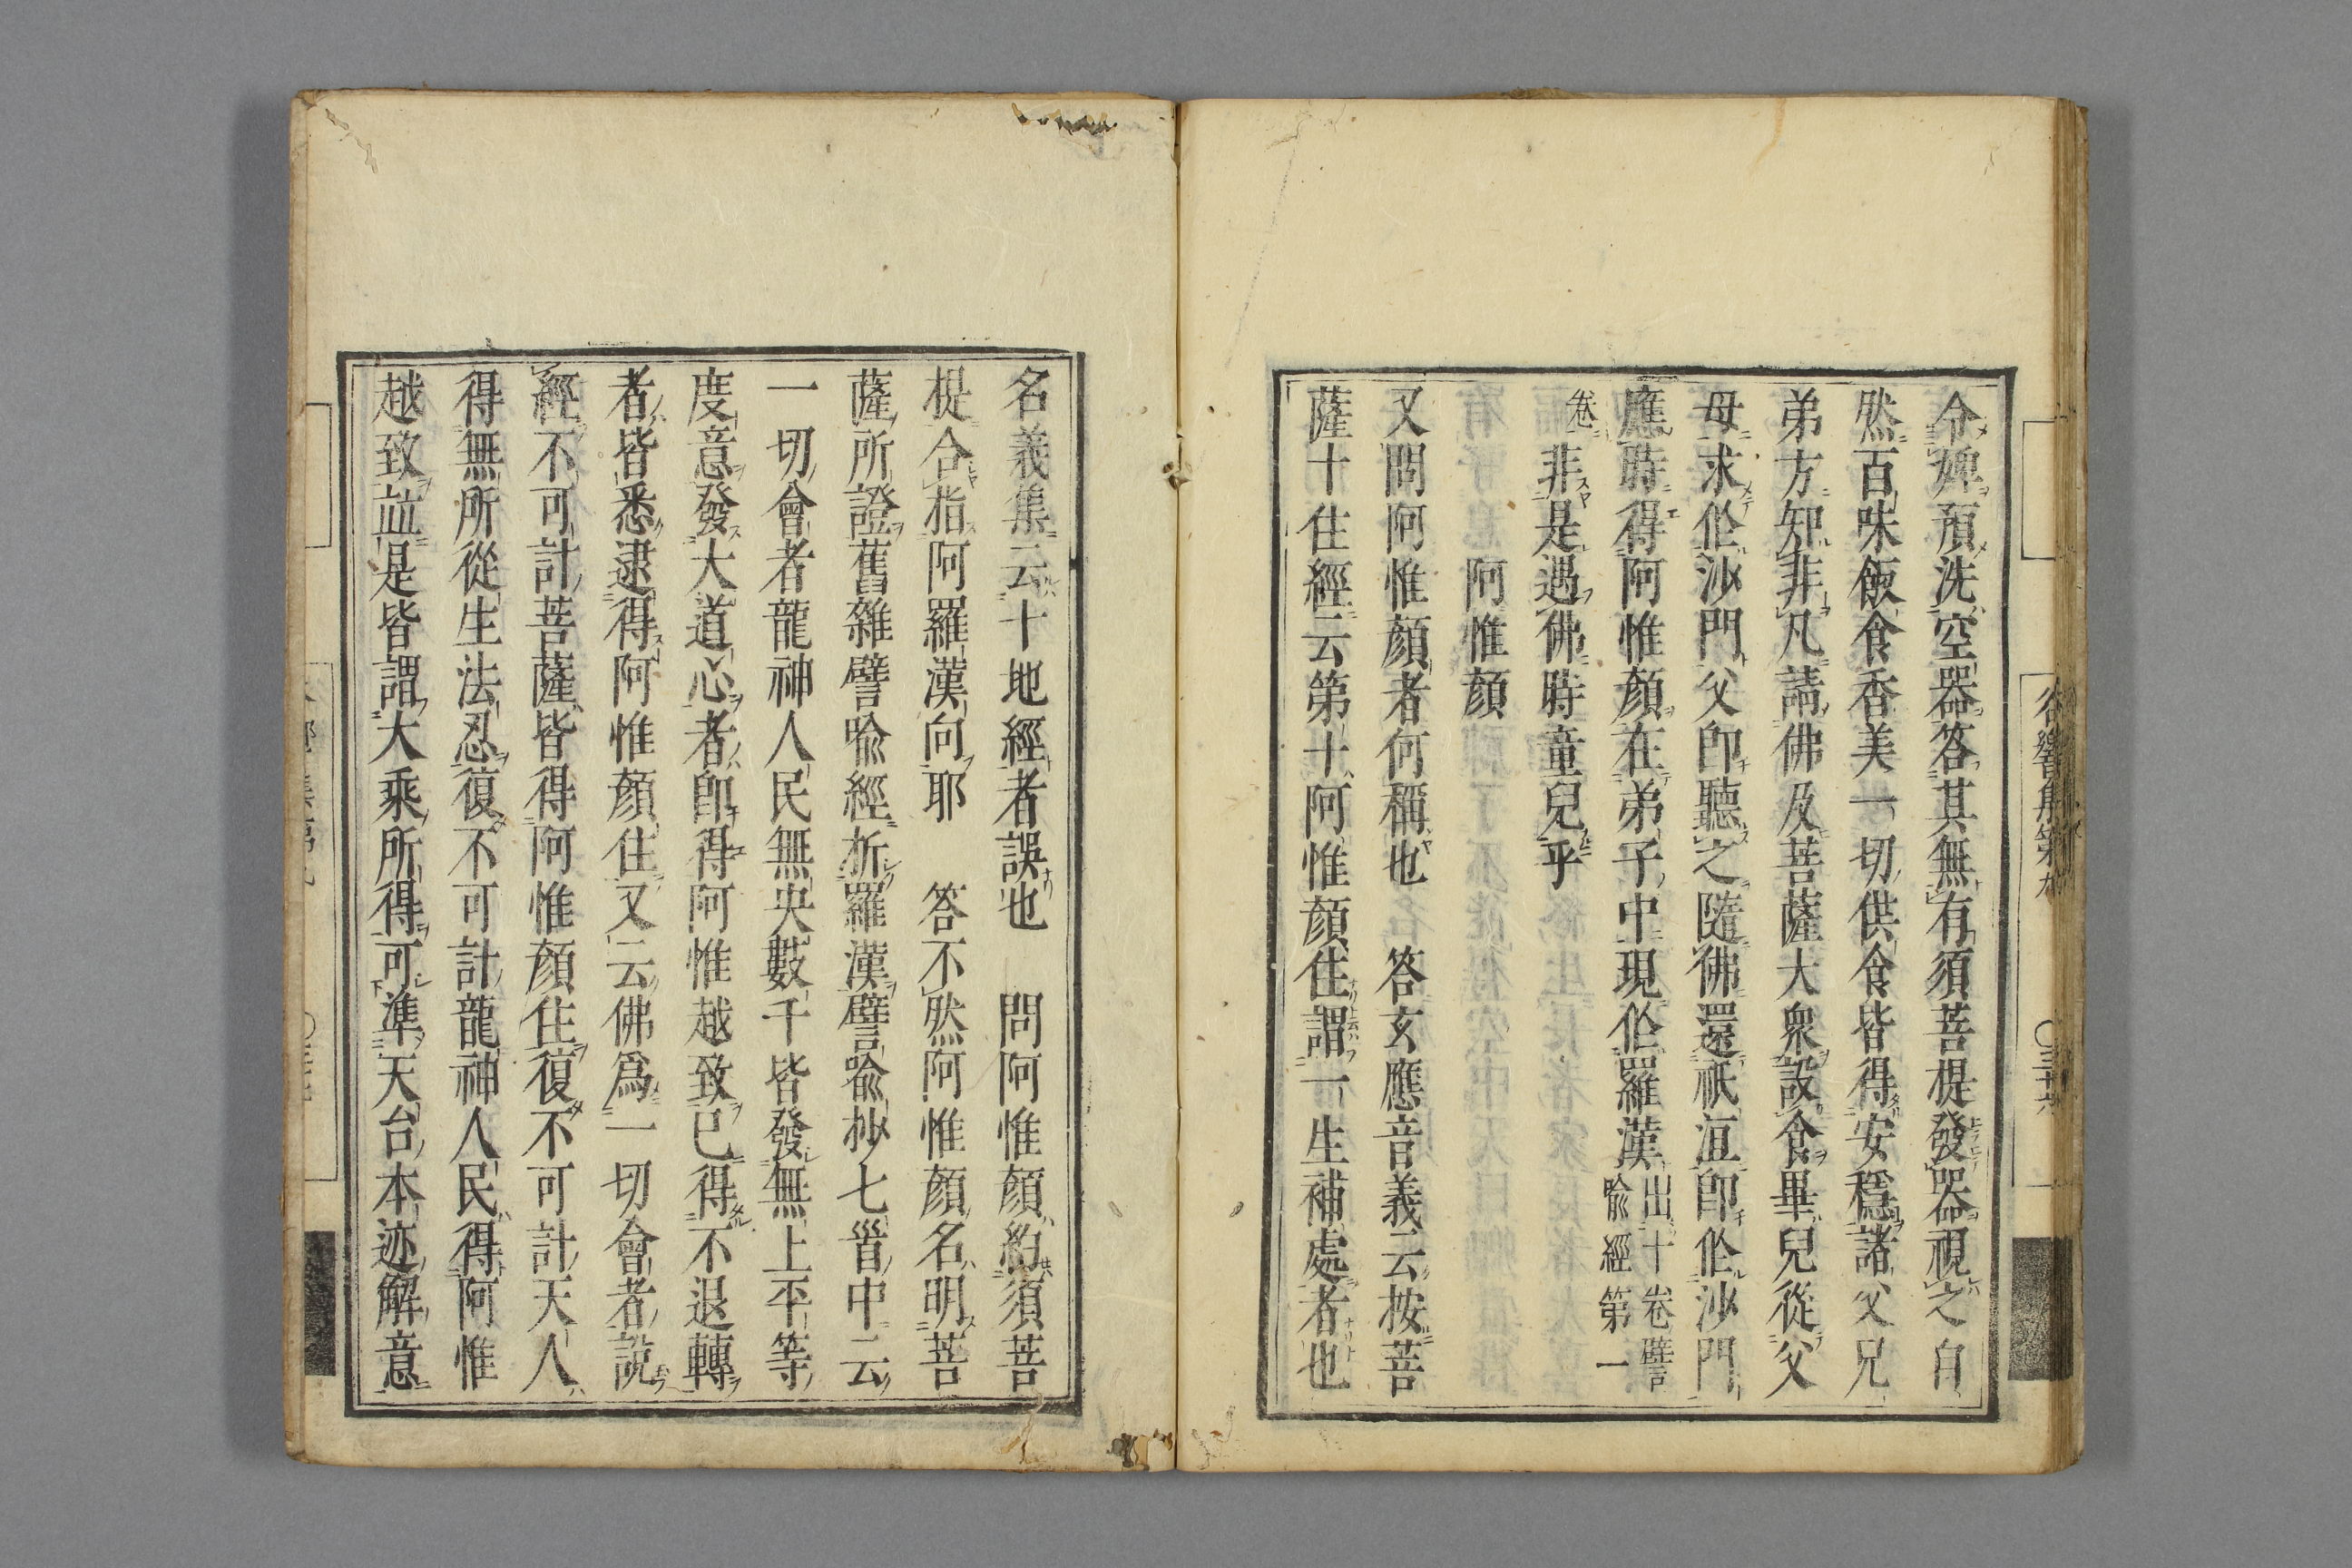 令婢預洗空器答其無有須菩提發器視之自
然百味飯食香美一切供食皆得安穩諸父兄
弟方知非凡請佛及菩薩大衆設食畢兒從父
母求作沙門父卽聽之隨佛還祇洹卽作沙門
應時得阿惟顏在弟子中現作羅漢出十卷譬喩經第一
卷非是遇佛時童兒乎
阿惟顏
又問阿惟顏者何稱也　答玄應音義云按菩
薩十住經云第十阿惟顏住謂一生補處者也
名義集云十地經者誤也　問阿惟顏約須菩
提合指阿羅漢向耶　答不然阿惟顏名明菩
薩所證舊雜譬喩經折羅漢譬喩抄七㫖中云
一切會者龍神人民無央數千皆發無上平等
度意發大道心者卽得阿惟越致已得不退轉
者皆悉逮得阿惟顏住又云佛爲一切會者說
經不可計菩薩皆得阿惟顏住復不可計天人
得無所從生法忍復不可計龍神人民得阿惟
越致並是皆謂大乘所得可準天台本迹解意
谷響集第九
○三十六